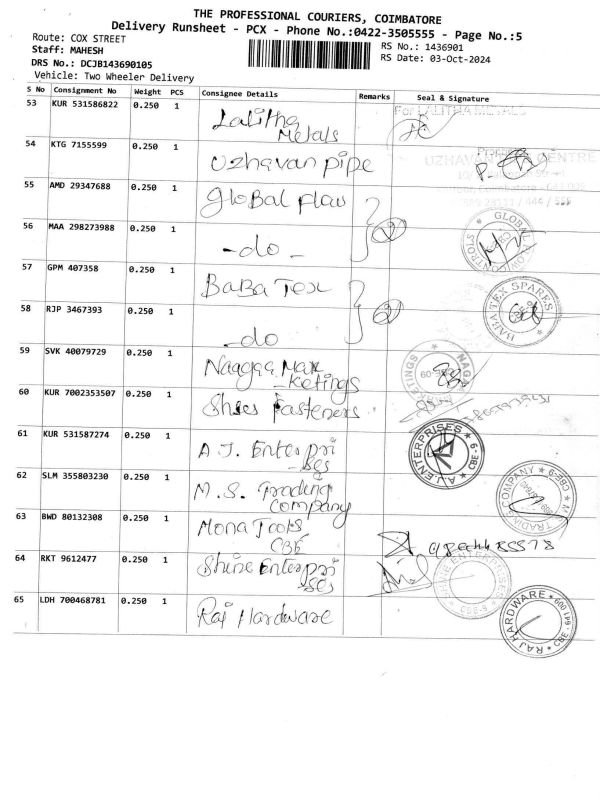 THE PROFESSIONAL COURIERS, COIMBATORE
Delivery Runsheet - PCX - Phone No.:0422-3505555 - Page No.:5
Route: COX STREET
RS No.: 1436901
Staff: MAHESH
RS Date: 03-Oct-2024
DRS No.: DCJB143690105
Vehicle: Two Wheeler Delivery
S No Consignment No Weight PCS Consignee Details Remarks Seal & Signature
53 KUR 531586822 0.250 1 Lalitha
Metals
For LALITHA METALS
54 KTG 7155599 0.250 1 Uzhavan pipe
UZHAVAN CENTRE
55 AMD 29347688 0.250 1 Global Flow
56 MAA 298273988 0.250 1 - do - 2
GLOBAL FLOW CONTROLS
57 GPM 407358 0.250 1 BaBa Tex
58 RJP 3467393 0.250 1 - do 2
BABATEX SPARES
CBE-9
59 SVK 40079729 0.250 1 Naggaa Mar
- ketings
60 KUR 7002353507 0.250 1 Shree Fasteners
61 KUR 531587274 0.250 1 A J. Enterpri
- ses
A.J.ENTERPRISES CBE-9
62 SLM 355803230 0.250 1 M.S. Trading
company
TRADING COMPANY CBE-9
63 BWD 80132308 0.250 1 Mona Tools
CBE
64 RKT 9612477 0.250 1 Shine Enterpri
- ses
SHINE ENTERPRISES CBE-9
65 LDH 700468781 0.250 1 Raj Hardware
RAJ HARDWARE CBE - 641 009